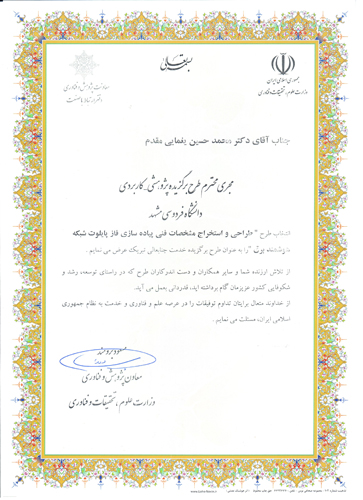 بسمه تعالی
جمهوری اسلامی ایران
وزارت علوم، تحقیقات و فناوری
معاونت پژوهش و فناوری
جناب آقای دکتر محمد حسین یغمایی مقدم
مجری محترم طرح برگزیده پژوهشی کاربردی
دانشگاه فردوسی مشهد
انتخاب طرح " طراحی و استخراج مشخصات فنی پیاده سازی فاز پایلوت شبکه
هوشمند برق "را به عنوان طرح برگزیده خدمت جنابعالی تبریک عرض می نمایم.
از تلاش ارزنده شما و سایر همکاران و دست اندرکاران طرح که در راستای توسعه، رشد و
شکوفایی کشور عزیزمان گام برداشته اید، قدردانی بعمل می آید.
از خداوند متعال برایتان تداوم توفیقات را در عرصه علم و فناوری و خدمت به نظام جمهوری
اسلامی ایران، مسئلت می نمایم.
مسعود برومند
معاون پژوهش و فناوری
وزارت علوم، تحقیقات و فناوری